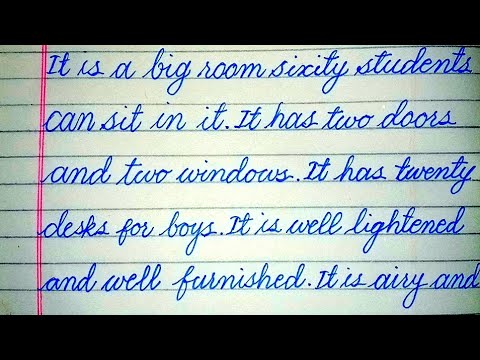 It is a big room sixity students
can sit in it. It has two doors
and two windows. It has twenty
desks for boys. It is well lightened
and well furnished. It is airy and